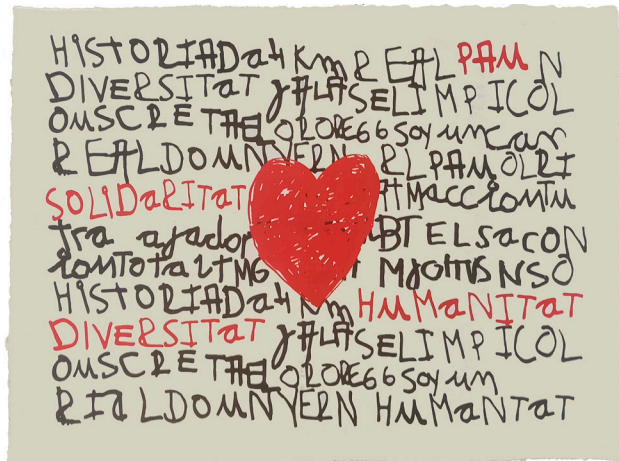 HiSTORiADa4 Km R EAL PAU N
DIVERSITAT JALA SELIMPICOL
OUSCRETAEL ORORE66 SOY UN Can
REALDOUNYERN RLPAUOLRI
SOLIDaRITaT ATMACCionTu
tra ajador BT ELSaCON
ionTOTaLTMG T MJOHTVSNSO
HiSTORiADa4 Km HuMaNITaT
DIVERSITaT JALA SELIMPICOL
OUSCRETAEL ORORE66 SOY UN
RIaLDOUNYERN HuMaNTaT